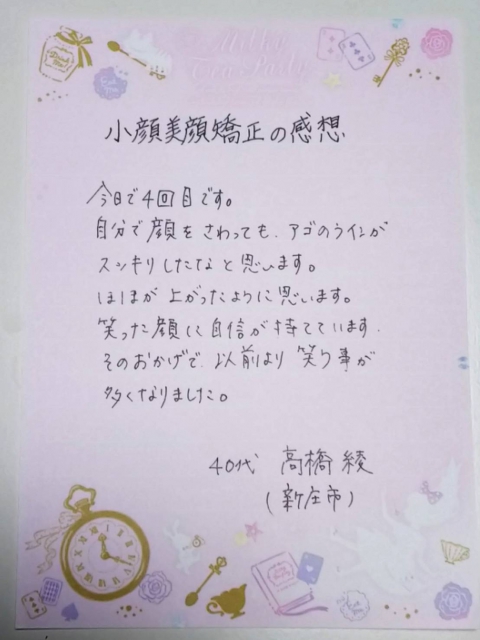 Milky
Tea Party
小顔美顔矯正の感想
今日で4回目です。
自分で顔をさわっても、アゴのラインが
スッキリしたなと思います。
ほほが上がったように思います。
笑った顔に自信が持てています。
そのおかげで、以前より笑う事が
多くなりました。
40代 高橋綾
(新庄市)